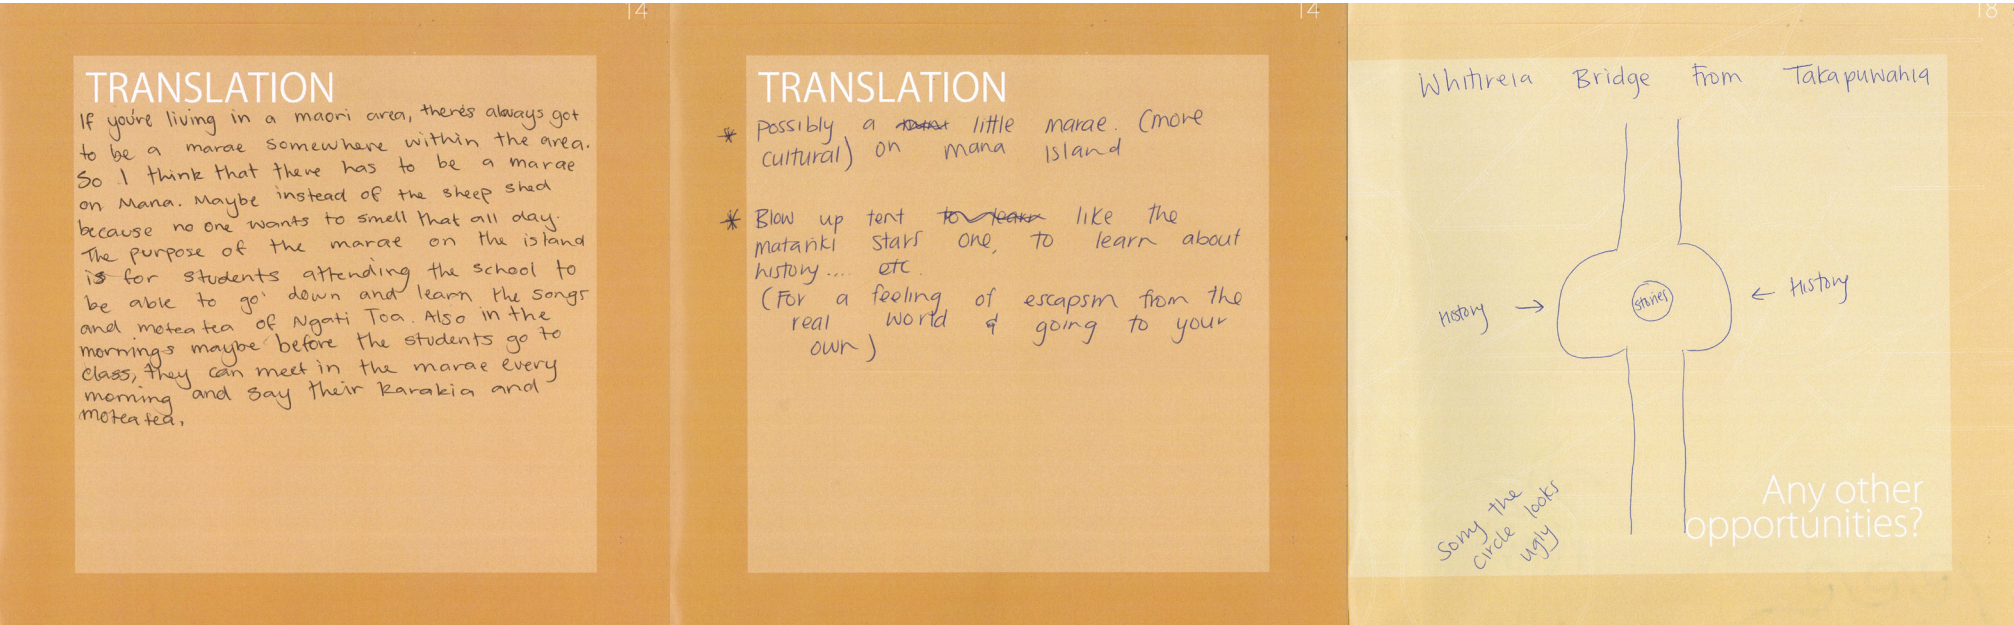 14
TRANSLATION
If you're living in a maori area, there's always got
to be a marae somewhere within the area.
So I think that there has to be a marae
on Mana. Maybe instead of the sheep shed
because no one wants to smell that all day.
The purpose of the marae on the island
is for students attending the school to
be able to go down and learn the songs
and moteatea of Ngati Toa. Also in the
mornings maybe before the students go to
class, they can meet in the marae every
morning and say their karakia and
moteatea.
14
TRANSLATION
* Possibly a little marae. (more
cultural) on mana Island
* Blow up tent like the
matariki stars one, to learn about
history.... etc.
(For a feeling of escapsm from the
real world & going to your
own)
18
Whitireia Bridge From Takapuwahia
History →
stories
← History
Sorry the
circle looks
ugly
Any other
opportunities?